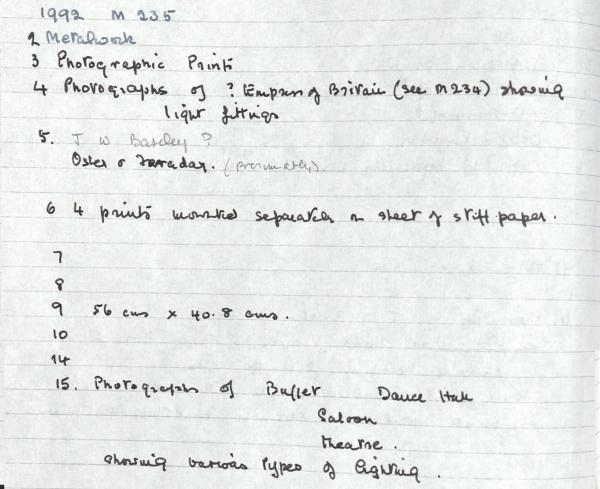 1992 M 235
2 Metalwork
3 Photographic Prints
4 Photographs of ? Empress of Britain (see M234) showing
light fittings
5. J W Barclay ?
Osler & Faraday. (presumably).
6 4 prints mounted separately on sheet of stiff paper.
7
8
9 56 cms x 40.8 cms.
10
14
15. Photographs of Buffet Dance Hall
Saloon
theatre.
showing various types of lighting.